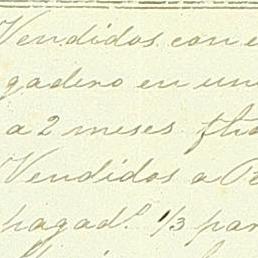 Vendidos con
gadero en un
a 2 meses
Vendidos a
pagad.º 1/3 par